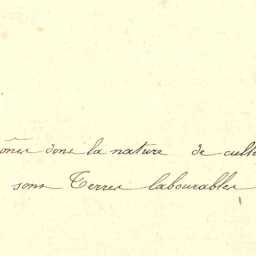 dont la nature de cult
sont Terres labourables